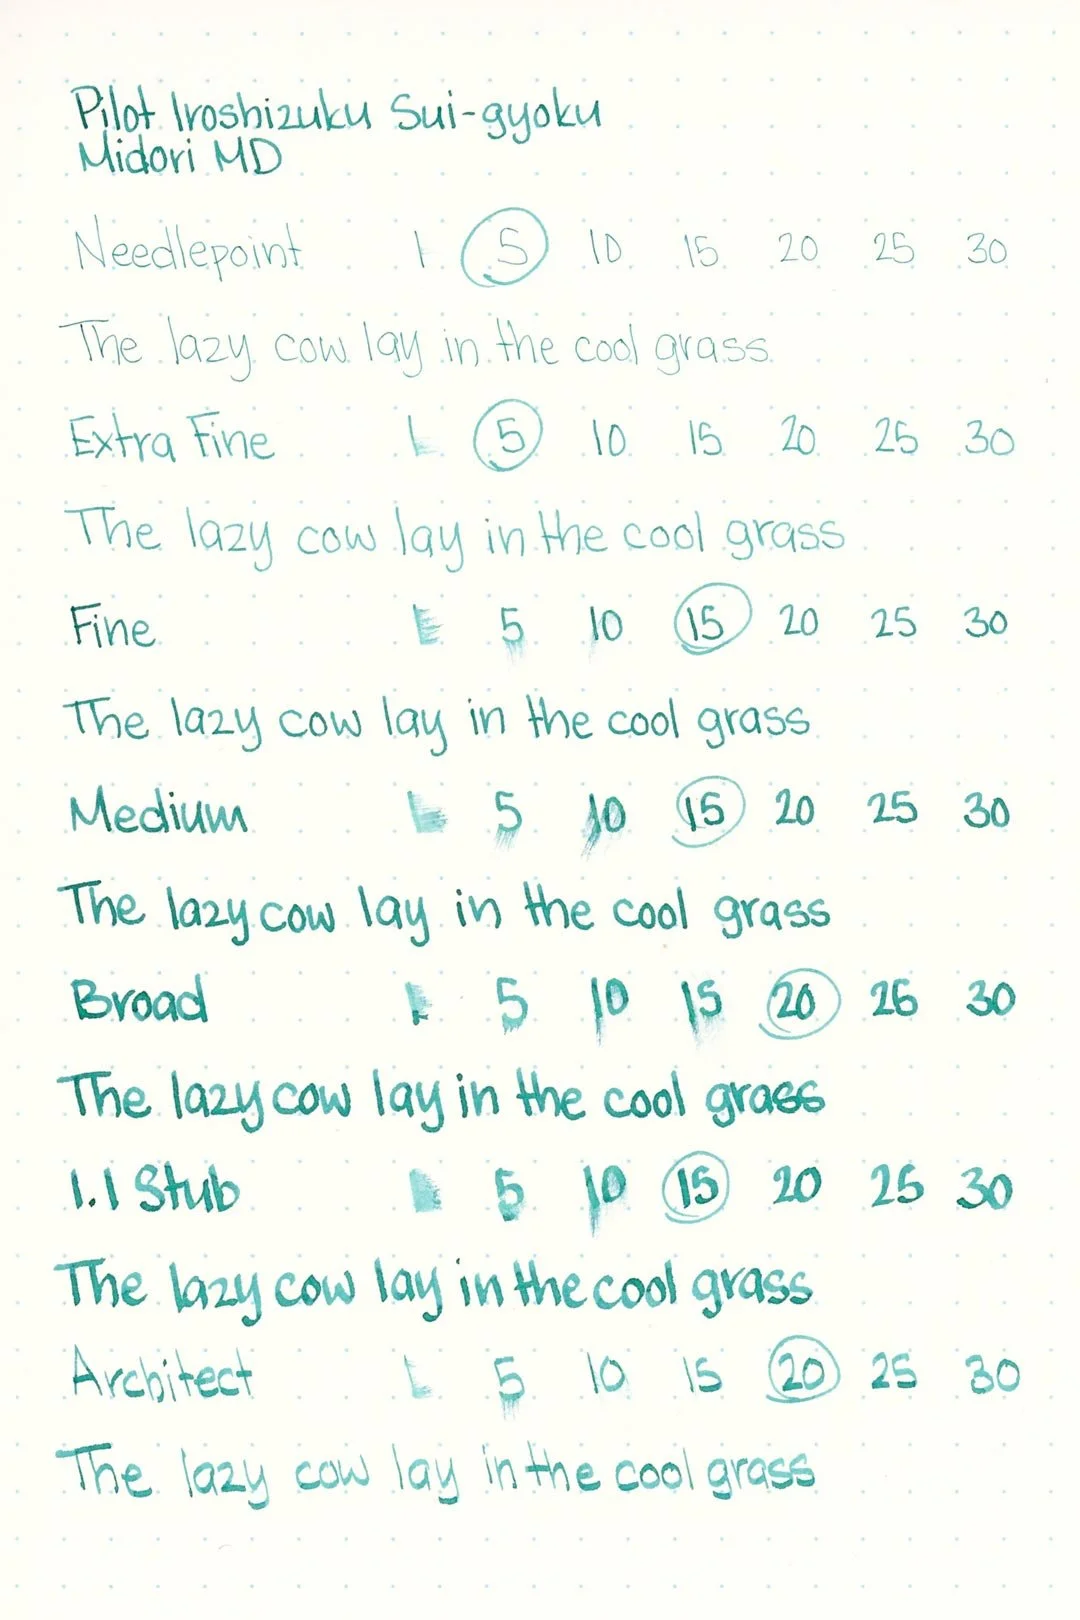 Pilot Iroshizuku Sui-gyoku
Midori MD
Needlepoint 1 5 10 15 20 25 30
The lazy cow lay in the cool grass
Extra Fine 1 5 10 15 20 25 30
The lazy cow lay in the cool grass
Fine 1 5 10 15 20 25 30
The lazy cow lay in the cool grass
Medium 1 5 10 15 20 25 30
The lazy cow lay in the cool grass
Broad 1 5 10 15 20 25 30
The lazy cow lay in the cool grass
1.1 Stub 1 5 10 15 20 25 30
The lazy cow lay in the cool grass
Architect 1 5 10 15 20 25 30
The lazy cow lay in the cool grass